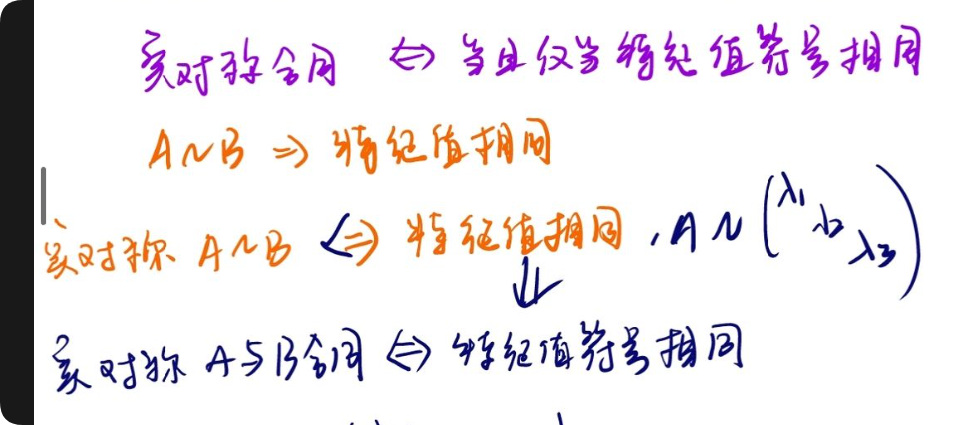 实对称合同 ⇔ 当且仅当特征值符号相同
A~B ⇒ 特征值相同
实对称 A~B ⇔ 特征值相同,A~(λ1 λ2 λ3)
⇓
实对称 A与B合同 ⇔ 特征值符号相同